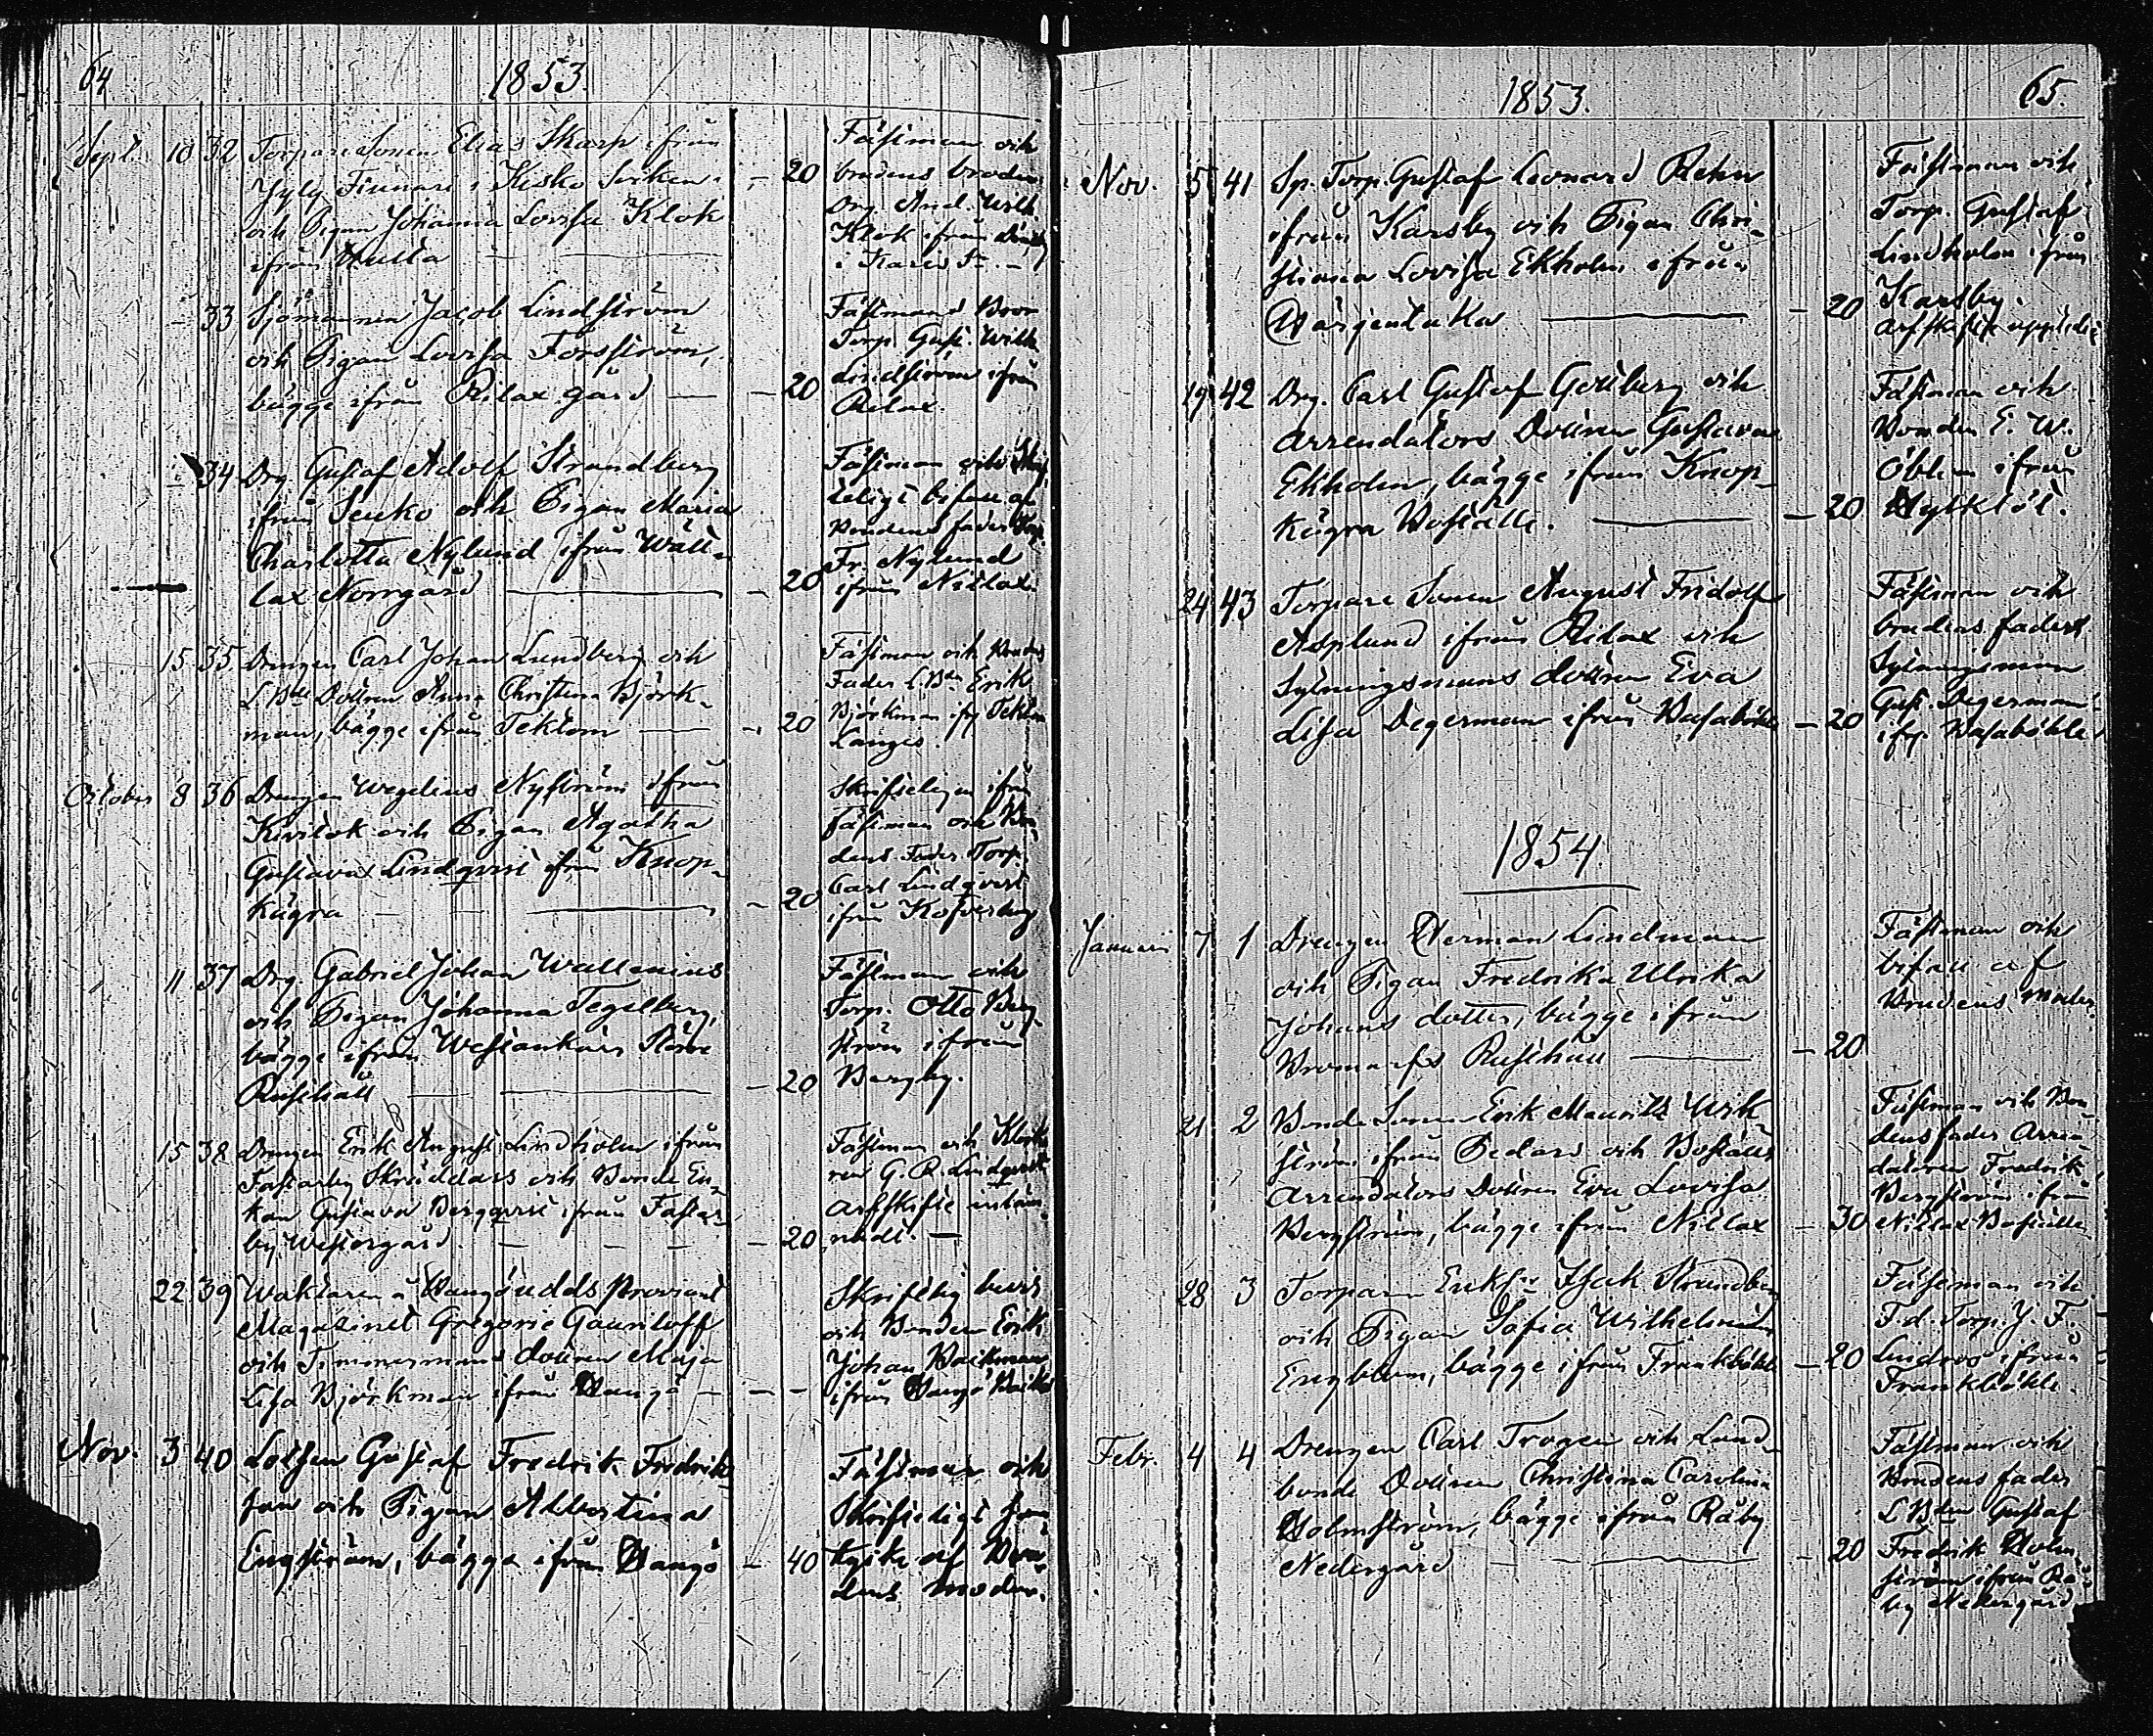 64
1853.
Sept. 10 32 Torpare Sonen Elias Skarp ifrån
Jyly Finnari i Kisko Socken
och Pigan Johanna Lovisa Klok
ifrån
— 20
Fästman och
brudens broder
Drg. And. Wilh.
Klok ifrån
i Karis Sn. —
— 33 Sjömannen Jacob Lindström
och Pigan Lovisa Forsström,
bägge ifrån Rilax gård — — 20
Fästmans Bror
Torp. Gust. Wilh.
Lindström ifrån
Rilax.
— 34 Drg Gustaf Adolf Strandberg
ifrån och Pigan Maria
Charlotta Nylund ifrån Wätt-
lax Norrgård — — 20
Fästman och Skrif-
teligt bifall af
brudens fader Torp.
Fr. Nylund
ifrån Nitlax.
15 35 Drengen Carl Johan Lundberg och
L.Bde Dottren Anna Christina Björk-
man, bägge ifrån Tektom — — 20
Fästman och brudens
Fader L.Bden Erik
Björkman ifr. Tektom
Langes.
October 8 36 Drengen Wegelius Nyström ifrån
Kivitok och Pigan Agatha
Gustava Lindqvist ifrån Knop-
kägra — — 20
Skrifteligen ifrån
Fästman och Bru-
dens Fader Torp.
Carl Lindqvist
ifrån Kofverberg
" 11 37 Drg. Gabriel Johan Wallenius
och Pigan Johanna Tegelberg,
bägge ifrån Westankärr
Rusthåll — — 20
Fästman och
Torp. Otto Berg-
ström ifrån
Bergby.
15 38 Drengen Erik August Lindholm ifrån
Fastarby Skräddars och Bonde En-
kan Gustava Bergqvist ifrån Fastar-
by Westergård — — — — 20
Fästman och Klocka-
ren G. R. Lindqvist
Arfskifte inläm-
nadt. —
22 39 Waktaren å Hangöudds Proviant
Magazinet Gregorie Gauriloff
och Timmermans dottren Maja
Lisa Björkman ifrån Hangö — — —
Skriftlig bevis
och Bonden Erik
Johan Backman
ifrån Hangö
Nov. 3 40 Lotsen Gustaf Fredrik Fredriks-
son och Pigan Albertina
Engström, bägge ifrån Hangö — 40
Fästman och
Skriftligt sam-
tycke af Bru-
dens moder.
1853.
65.
Nov. 5 41 Sp. Torp. Gustaf Leonard Rehn
ifrån Karsby och Pigan Chri-
stiana Lovisa Ekholm ifrån
— — 20
Fästman och
Torp. Gustaf
Lindholm ifrån
Karsby.
Arfskifte
19 42 Drg. Carl Gustaf Göttberg och
Arrendators Dottren Gustava
Ekholm, bägge ifrån Knop-
kägra Boställe. — — 20
Fästman och
Bonden E. W.
Öblom ifrån
24 43 Torpare Sonen August Fridolf
Asplund ifrån Rilax och
Sytningsmans dottren Eva
Lisa Degerman ifrån Basaböhle — 20
Fästman och
brudens fader
Sytningsman
Gust. Degerman
ifr. Basaböhle
1854.
Januari 7 1 Drengen Herman Lindman
och Pigan Fredrika Ulrika
Johans dotter, bägge ifrån
Bromarfs Rusthåll — — 20
Fästman och
bifall af
Brudens Moder
21 2 Bonde Sonen Erik Maurits Wik-
ström ifrån Pedars och Boställs
Arrendators Dottren Eva Lovisa
Bergström, bägge ifrån Nitlax — 30
Fästman och Bru-
dens fader Arren-
datoren Fredrik
Bergström ifrån
Nitlax Boställe
28 3 Torparen Isak Strandberg
och Pigan Sofia Wilhelmina
Engblom, bägge ifrån Frankböhle — 20
Fästman och
F.d. Torp. J. F.
Lindroos ifrån
Frankböhle.
Febr. 4 4 Drengen Carl Trogen och Land-
bonde Dottren Christina Carolina
Holmström, bägge ifrån Råby
Nedergård — — 20
Fästman och
Brudens fader
L.Bden Gustaf
Fredrik Holm-
ström ifrån Rå-
by Nedergård